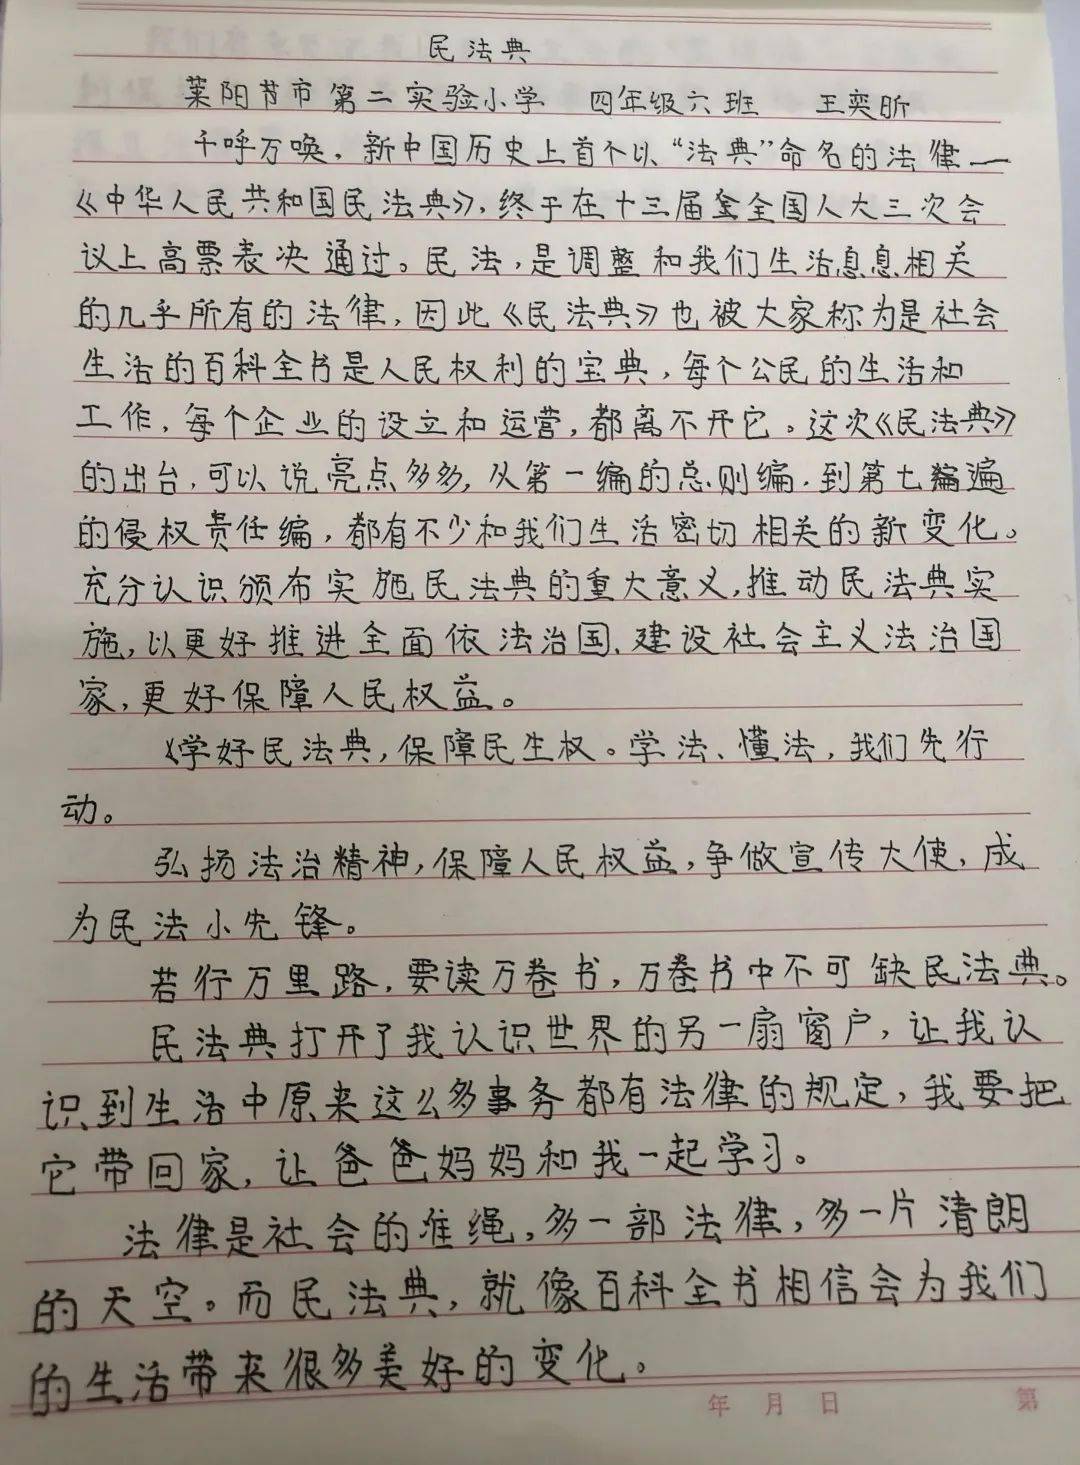 民法典
莱阳节市第二实验小学 四年级六班 王奕昕
千呼万唤，新中国历史上首个以“法典”命名的法律—
《中华人民共和国民法典》，终于在十三届全国人大三次会
议上高票表决通过。民法，是调整和我们生活息息相关
的几乎所有的法律，因此《民法典》也被大家称为是社会
生活的百科全书是人民权利的宝典，每个公民的生活和
工作，每个企业的设立和运营，都离不开它。这次《民法典》
的出台，可以说亮点多多，从第一编的总则编，到第七遍
的侵权责任编，都有不少和我们生活密切相关的新变化。
充分认识颁布实施民法典的重大意义，推动民法典实
施，以更好推进全面依法治国、建设社会主义法治国
家，更好保障人民权益。
学好民法典，保障民生权。学法、懂法，我们先行
动。
弘扬法治精神，保障人民权益，争做宣传大使，成
为民法小先锋。
若行万里路，要读万卷书，万卷书中不可缺民法典。
民法典打开了我认识世界的另一扇窗户，让我认
识到生活中原来这么多事务都有法律的规定，我要把
它带回家，让爸爸妈妈和我一起学习。
法律是社会的准绳，多一部法律，多一片清朗
的天空。而民法典，就像百科全书相信会为我们
的生活带来很多美好的变化。
年 月 日 第